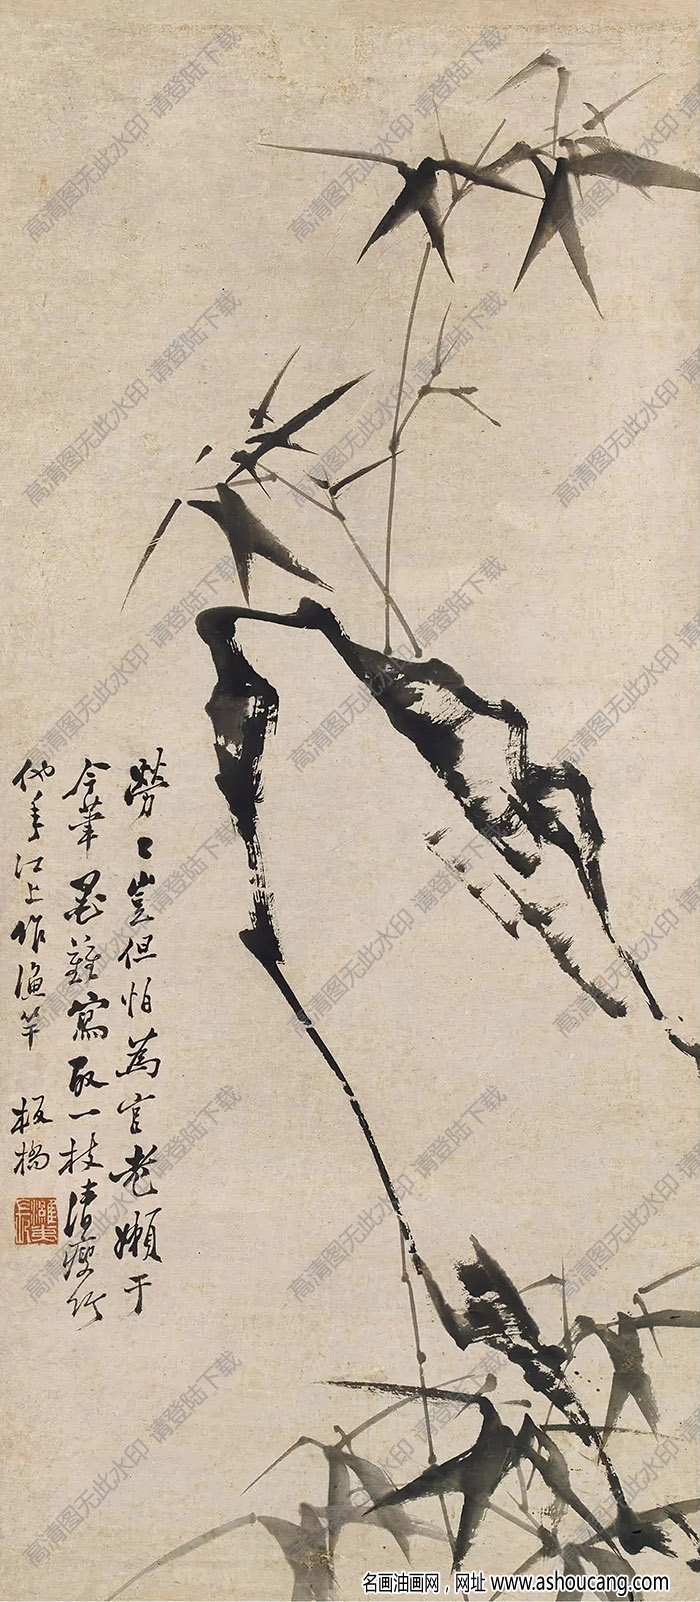 勞〻豈但怕為官老嬾于
今筆墨難寫取一枝清瘦竹
他年江上作漁竿 板橋
高清图无此水印 请登陆下载
名画油画网，网址 www.ashoucang.com